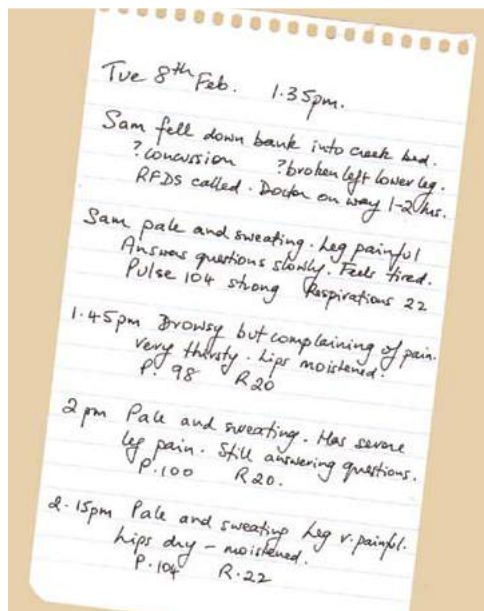 Tue 8th Feb. 1.35pm.
Sam fell down bank into creek bed.
? concussion ? broken left lower leg.
RFDS called. Doctor on way 1-2 hrs.
Sam pale and sweating. Leg painful
Answers questions slowly. Feels tired.
Pulse 104 strong Respirations 22
1.45pm Drowsy but complaining of pain.
very thirsty. Lips moistened.
P. 98 R 20
2pm Pale and sweating. Has severe
leg pain. Still answering questions.
P. 100 R 20.
2.15pm Pale and sweating Leg v. painful.
Lips dry – moistened.
P. 104 R. 22